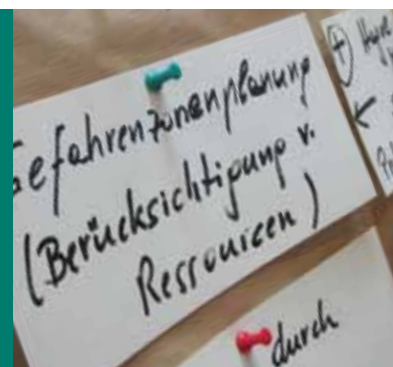 Gefahrenzonenplanung
(Berücksichtigung v.
Ressourcen)
durch